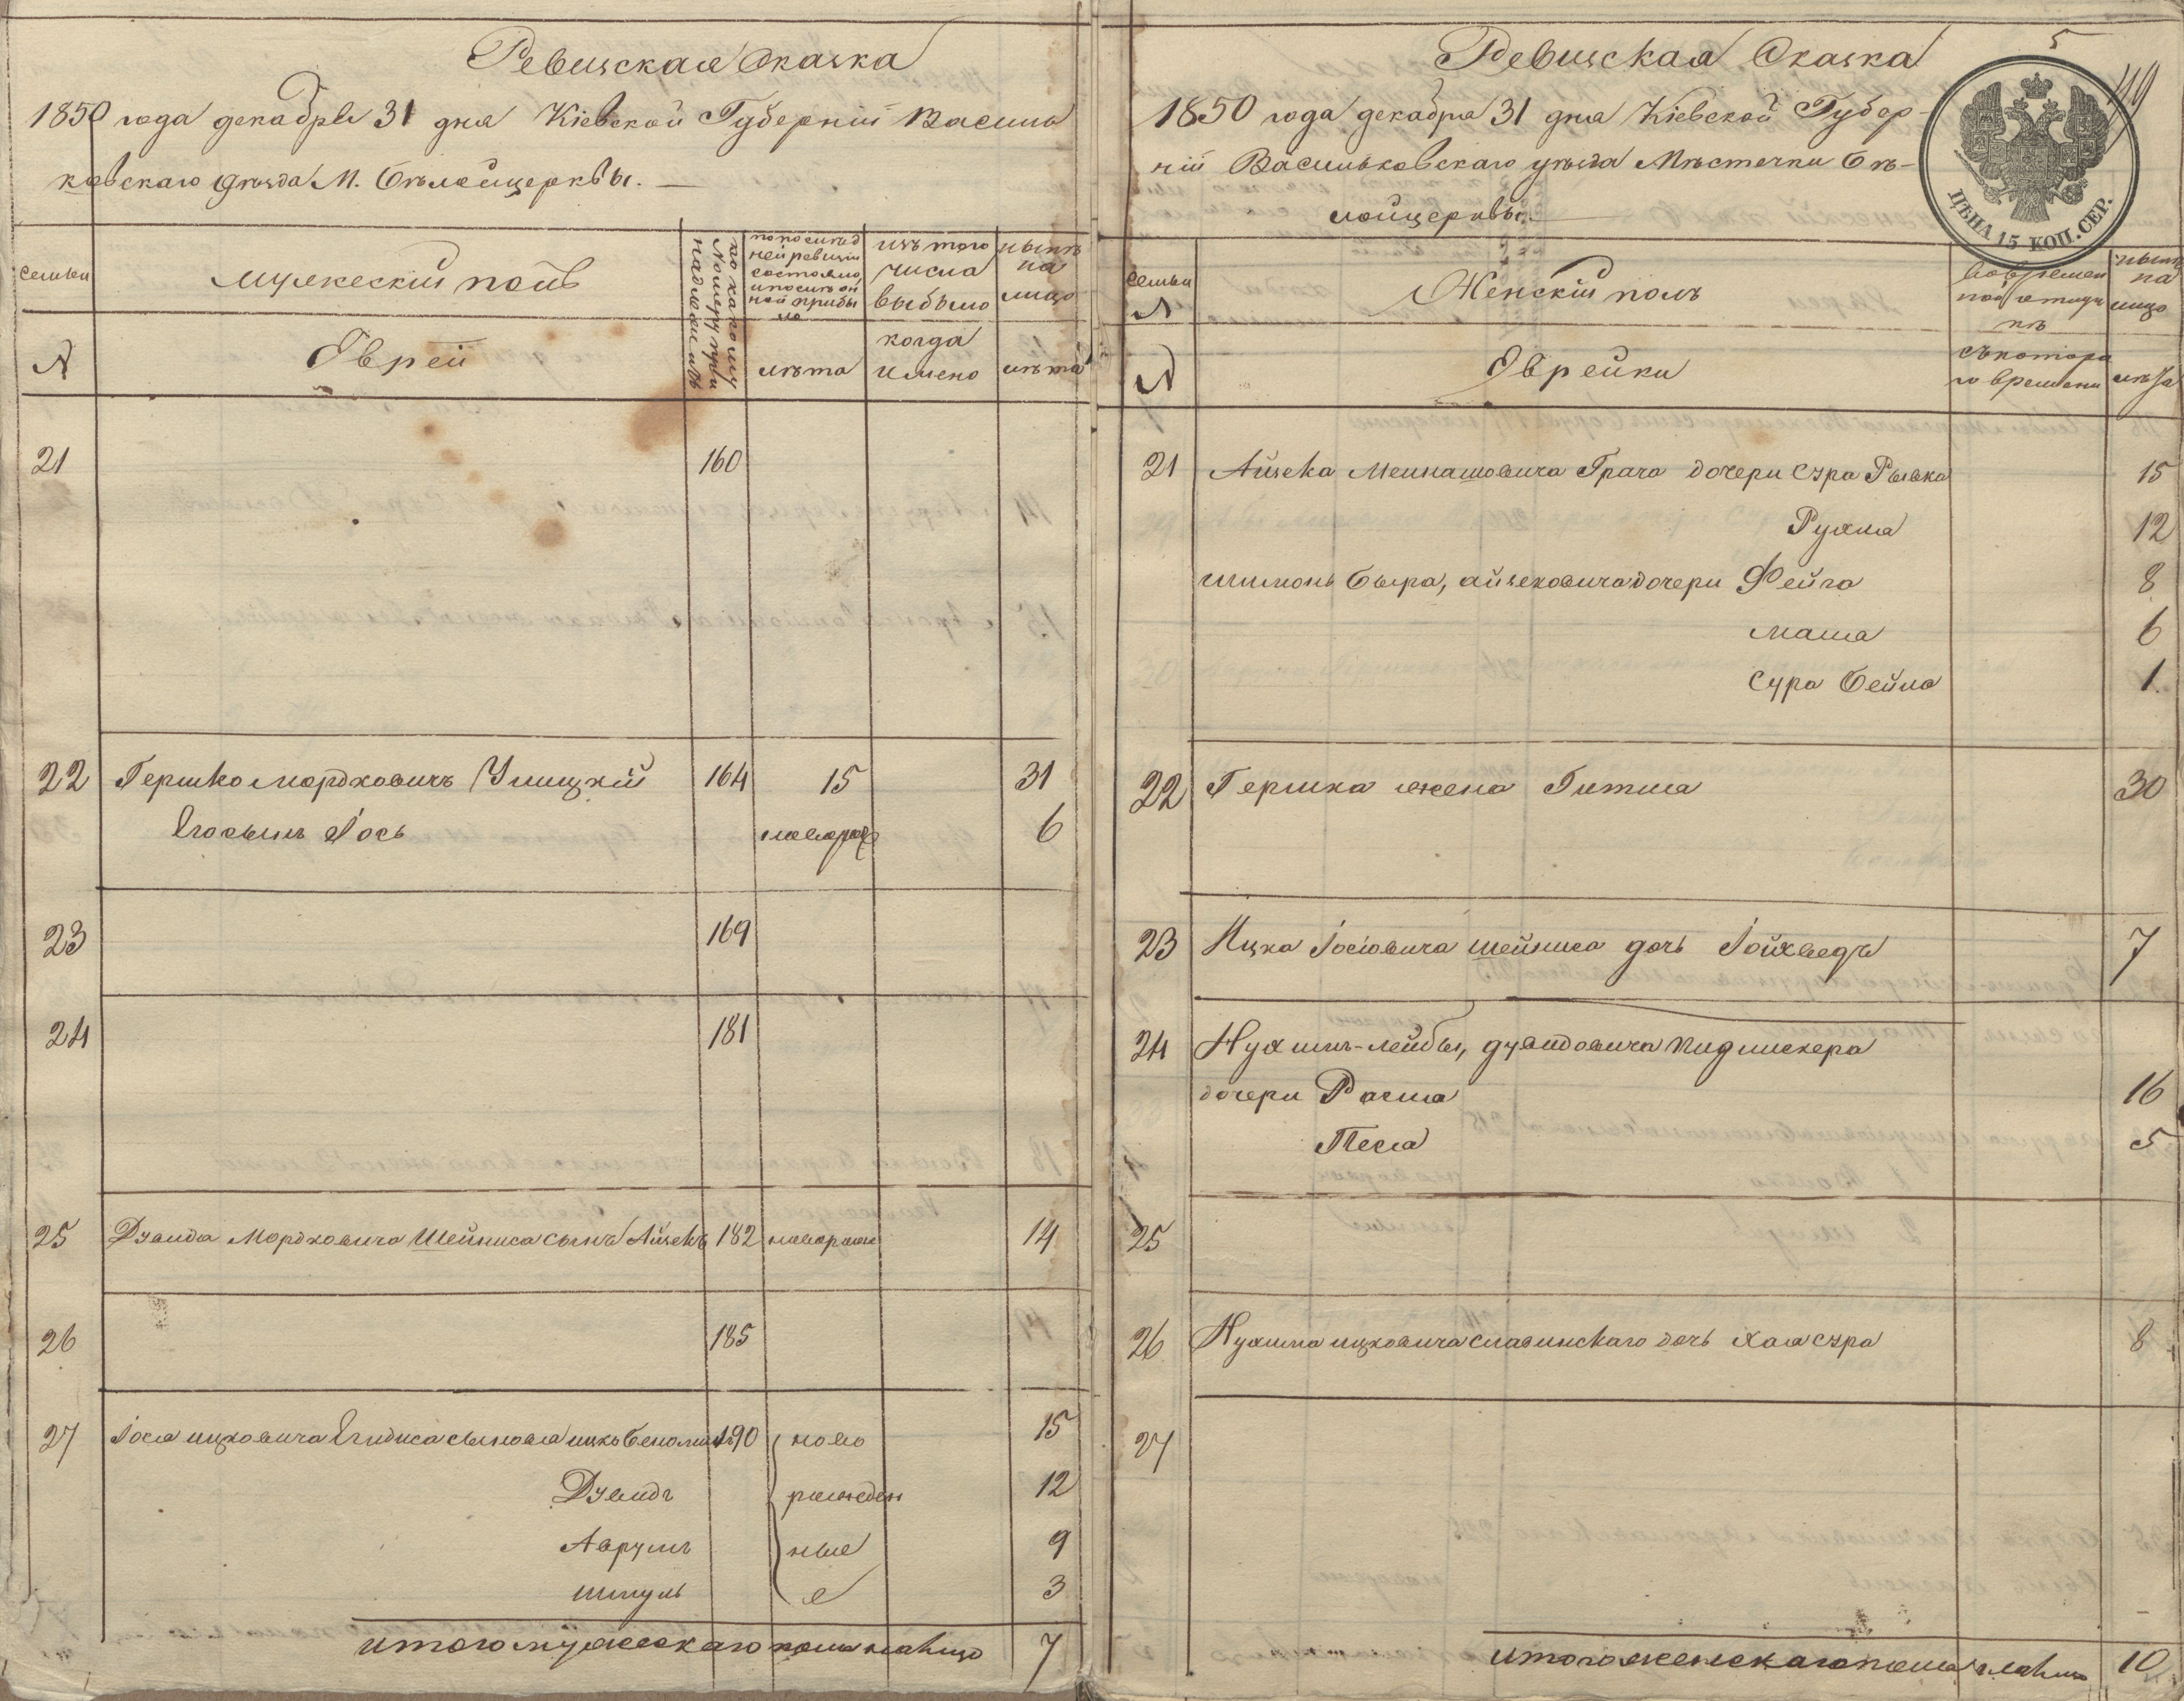 Ревизская Сказка
1850 года декабря 31 дня Кіевской Губерніи Василь
ковскаго уѣзда М. Бѣлойцеркви.
семьи
мужеский полъ
по какому Номеру при
надлежитъ
по послѣд
ней ревизіи
состояло
и послѣ он
ной прибы
ло
изъ того
числа
выбыло
нынѣ
на
лицо
№
Евреи
лѣта
когда
имено
лѣта
21 160
22 Гершко Мордковичъ Улицкій 164 15 31
Его сынъ Іось новорож 6
23 169
24 181
25 Дувида Мордковича Шейниса сынъ Айзекъ 182 новорожд 14
26 185
27 Іося ицковича сыновя ицко Беноминъ 190 ново 15
Дувидъ рожден 12
Аврумъ ные 9
Шмуль 3
итого мужескаго пола налицо 7
5
49
Ревизская Сказка
1850 года декабря 31 дня Кіевской Губер-
ніи Васильковскаго уѣзда Мѣстечки Бѣ-
лойцерквы.
ЦѢНА 15 КОП. СЕР.
семьи
№
Женскій полъ
во времен
ной отлуч
кѣ
нынѣ
на
лицо
№
Еврейки
съ котора
го времени
лѣта
21 Айзека Менашовича Грача дочери Сура Рывка 15
Рухля 12
Шимонъ Бера, айзековича дочери Фейга 8
Маша 6
Сура Бейла 1
22 Гершка жена Гитля 30
23 Ицка Іосіовича Шейниса дочь Іойхведъ 7
24 Нухимъ-Лейбы, дувидовича Пидлискера
дочери Рася 16
Песя 5
25
26 Нухима ицковича славинскаго дочь Хая Сура 8
27
итого женскаго пола налицо 10